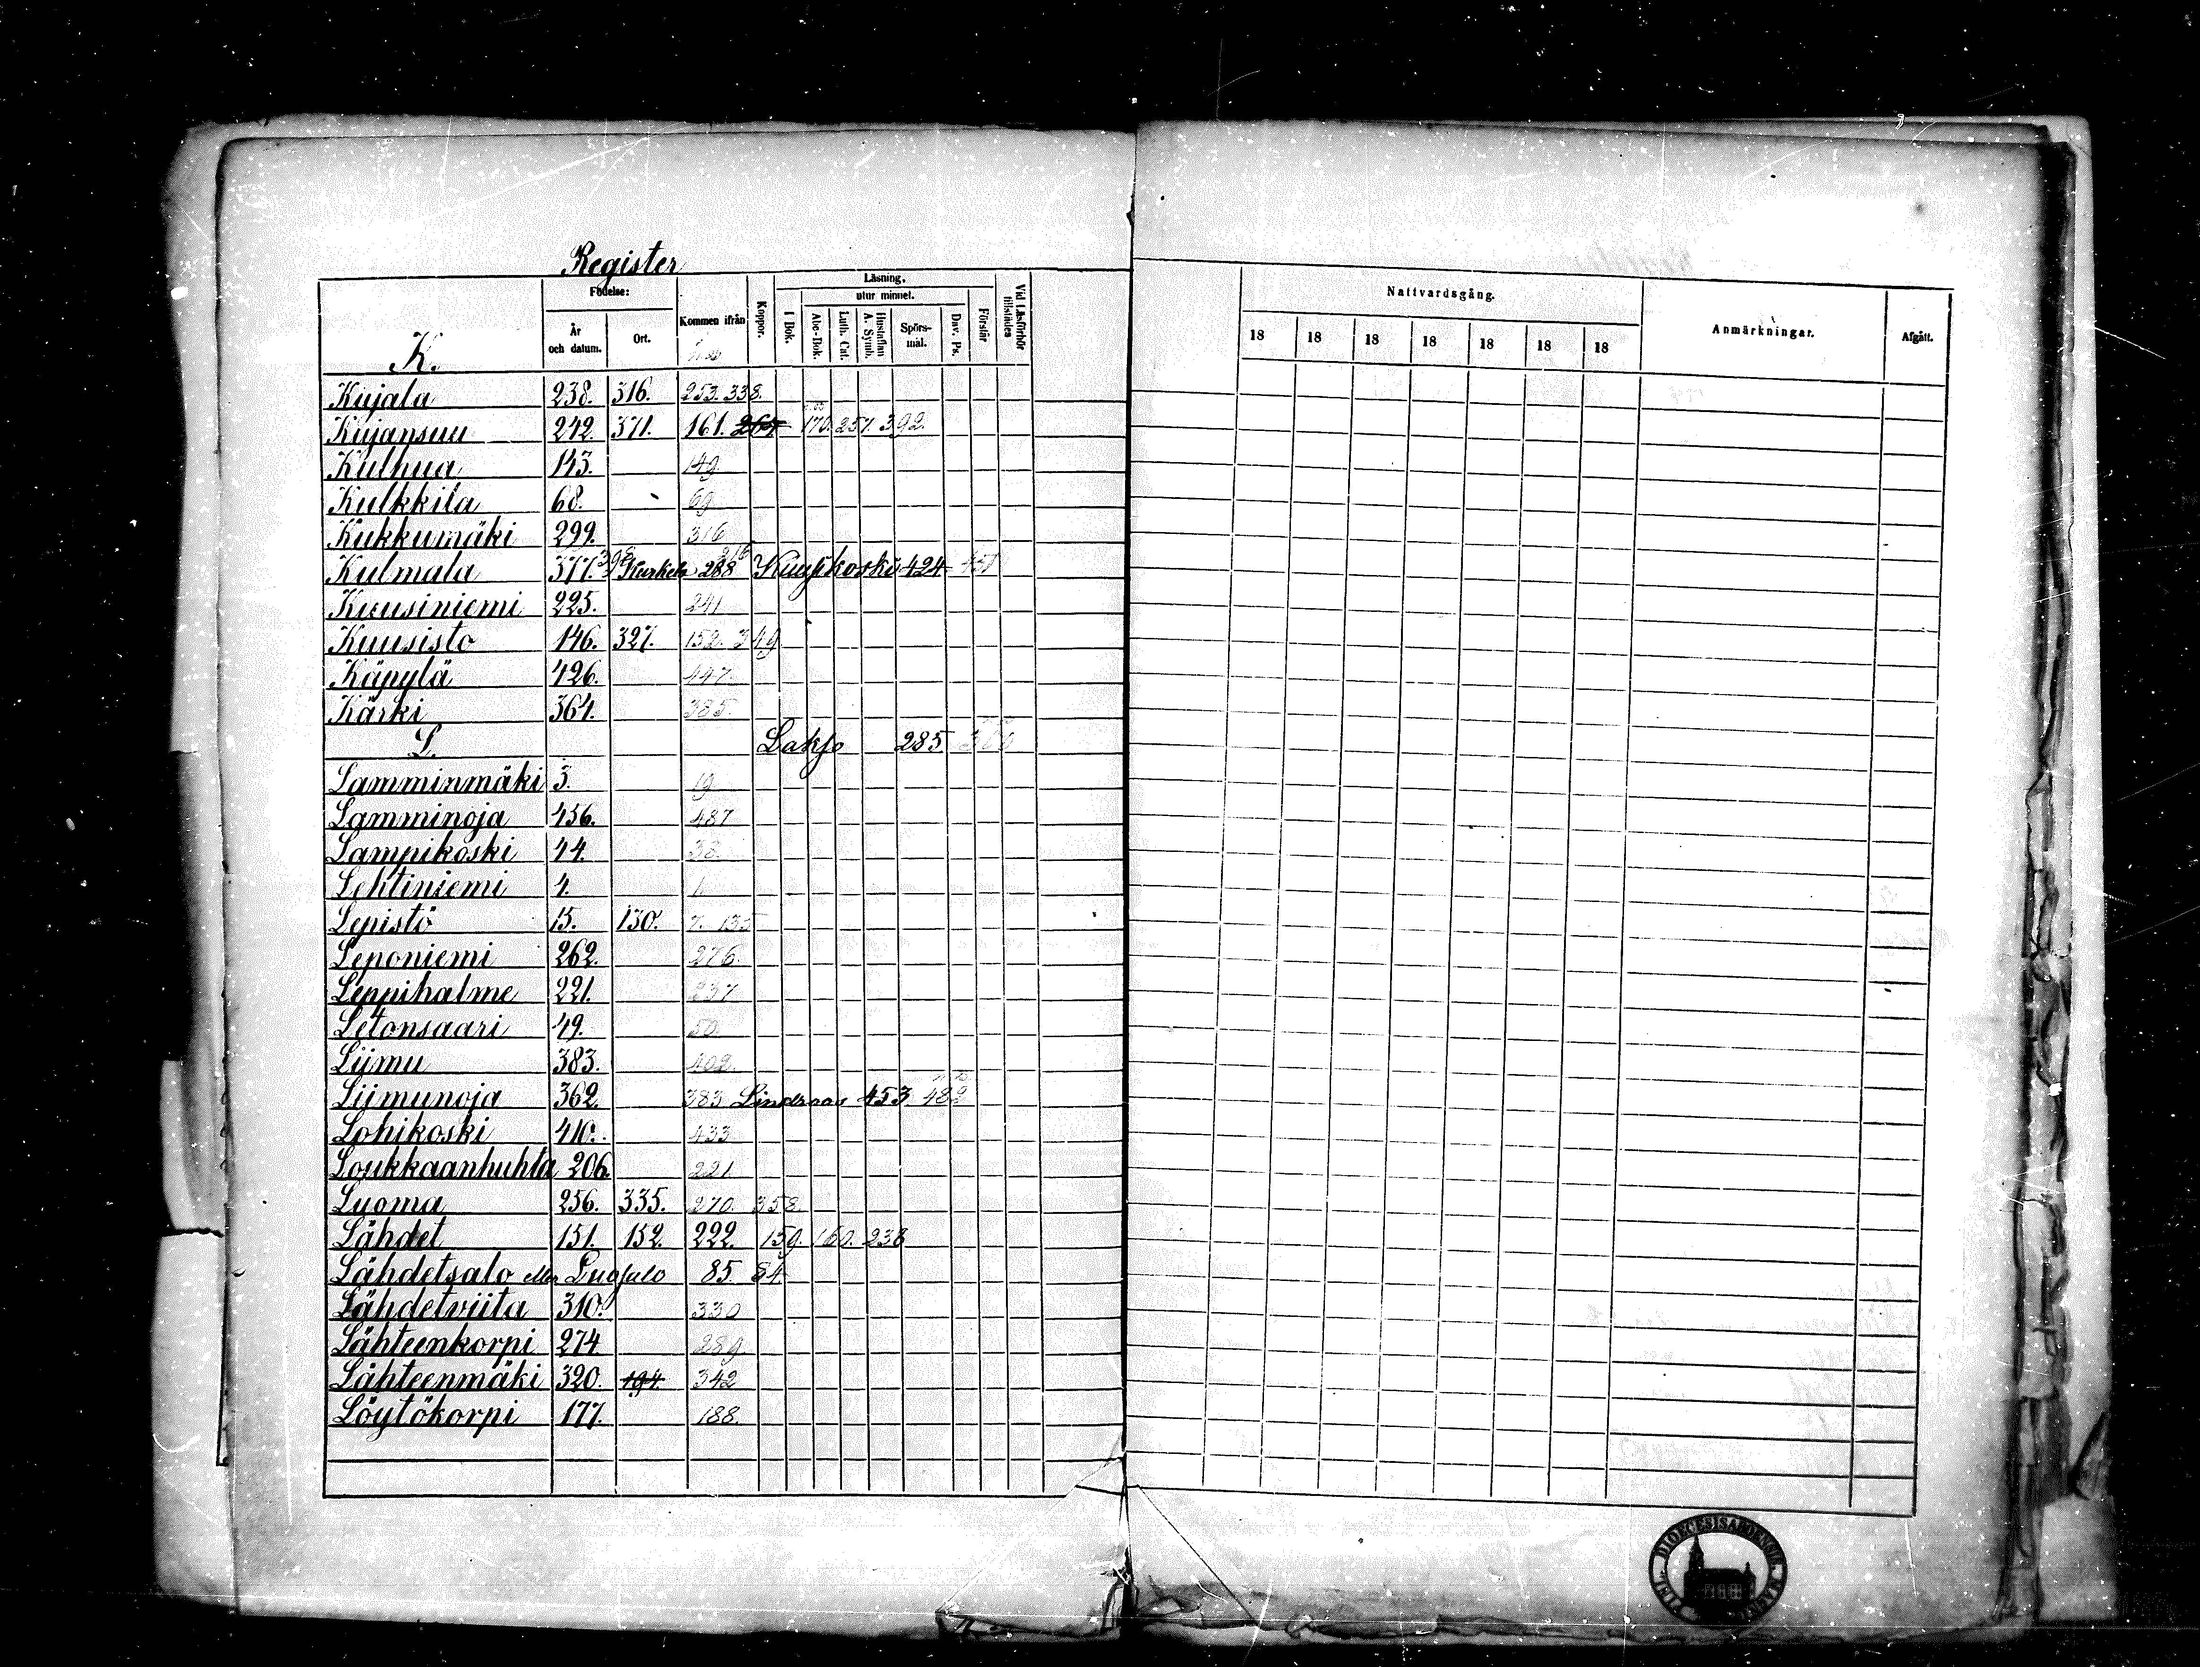 Register
Födelse:
Läsning,
utur minnet.
År och datum.
Ort.
Kommen ifrån
Koppor.
I Bok.
Abc-Bok.
Luth. Cat.
Hustaflan A. Symb.
Spörsmål.
Dav. Ps.
Förstår
Vid Läsförhör tillstädes
Nattvardsgång.
18 18 18 18 18 18 18
Anmärkningar.
Afgått.
K.
Kujala 238. 316. 253. 338.
Kujansuu 242. 371. 161. 264 170. 257. 392.
Kulhua 143. 149.
Kulkkila 68. 69
Kukkumäki 299. 316
Kulmala 377. 398 Kurkela 288 316 Kuuskoski 424 451
Kuusiniemi 225. 241
Kuusisto 146. 327. 152. 349
Käpylä 426. 447.
Kärki 364. 385.
L. Laksjo 285 300
Lamminmäki 3. 19.
Lamminoja 456. 487
Lampikoski 44. 38.
Lehtiniemi 4.
Lepistö 15. 130. 7. 135
Leponiemi 262. 276.
Leppihalme 221. 237
Letonsaari 49. 50.
Liimu 383. 402.
Liimunoja 362. 383 Lindroos 453 482
Lohikoski 410. 433
Loukkaanhuhta 206. 221.
Luoma 256. 335. 270. 358.
Lähdet 151. 152. 222. 159. 160. 238
Lähdetsalo eller Lugsalo 85. 84.
Lähdetviita 310. 330
Lähteenkorpi 274 289
Lähteenmäki 320. 194. 342
Löytökorpi 177. 188.